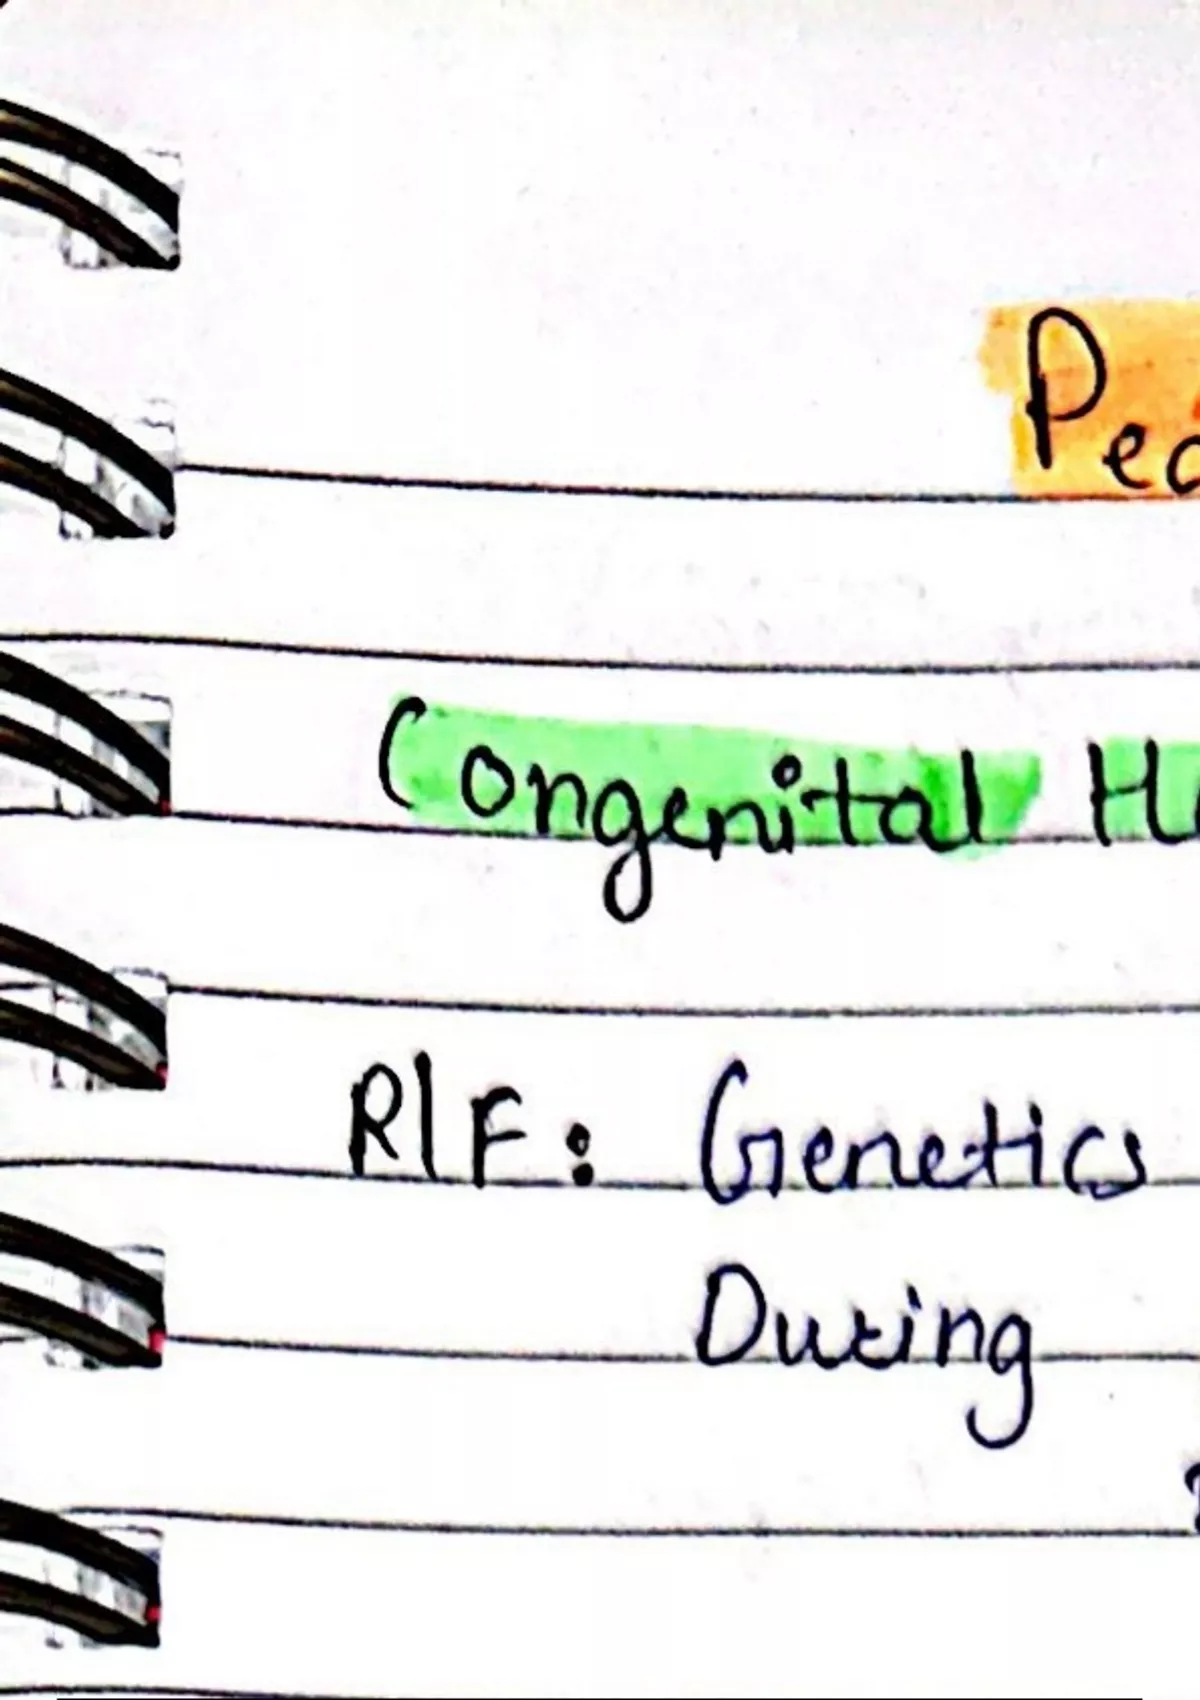 Ped
Congenital H
R/F: Genetics
During